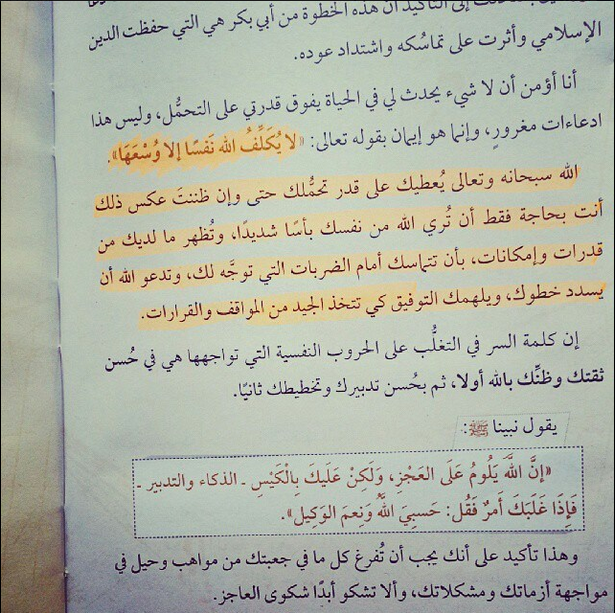 إلى التأكيد أن هذه الخطوة من أبي بكر هي التي حفظت الدين
الإسلامي وأثرت على تماسُكه واشتداد عوده.
أنا أؤمن أن لا شيء يحدث لي في الحياة يفوق قدرتي على التحمُّل، وليس هذا
ادعاءات مغرورٍ، وإنما هو إيمان بقوله تعالى: «لا يُكَلِّفُ الله نَفْسًا إلا وُسْعَهَا».
الله سبحانه وتعالى يُعطيك على قدر تحمُّلك حتى وإن ظننتَ عكس ذلك
أنت بحاجة فقط أن تُري الله من نفسك بأسًا شديدًا، وتُظهر ما لديك من
قدرات وإمكانات، بأن تتماسك أمام الضربات التي توجَّه لك، وتدعو الله أن
يسدد خطوك، ويلهمك التوفيق كي تتخذ الجيد من المواقف والقرارات.
إن كلمة السر في التغلُّب على الحروب النفسية التي تواجهها هي في حُسن
ثقتك وظنِّك بالله أولا، ثم بحُسن تدبيرك وتخطيطك ثانيًا.
يقول نبينا ﷺ:
«إنَّ اللَّهَ يَلُومُ عَلَى العَجْزِ، وَلَكِنْ عَلَيكَ بِالْكَيْسِ ـ الذكاء والتدبير ـ
فَإِذَا غَلَبَكَ أَمرٌ فَقُل: حَسبِيَ اللَّهُ وَنِعمَ الوَكِيل».
وهذا تأكيد على أنك يجب أن تُفرغ كل ما في جعبتك من مواهب وحيل في
مواجهة أزماتك ومشكلاتك، وألا تشكو أبدًا شكوى العاجز.